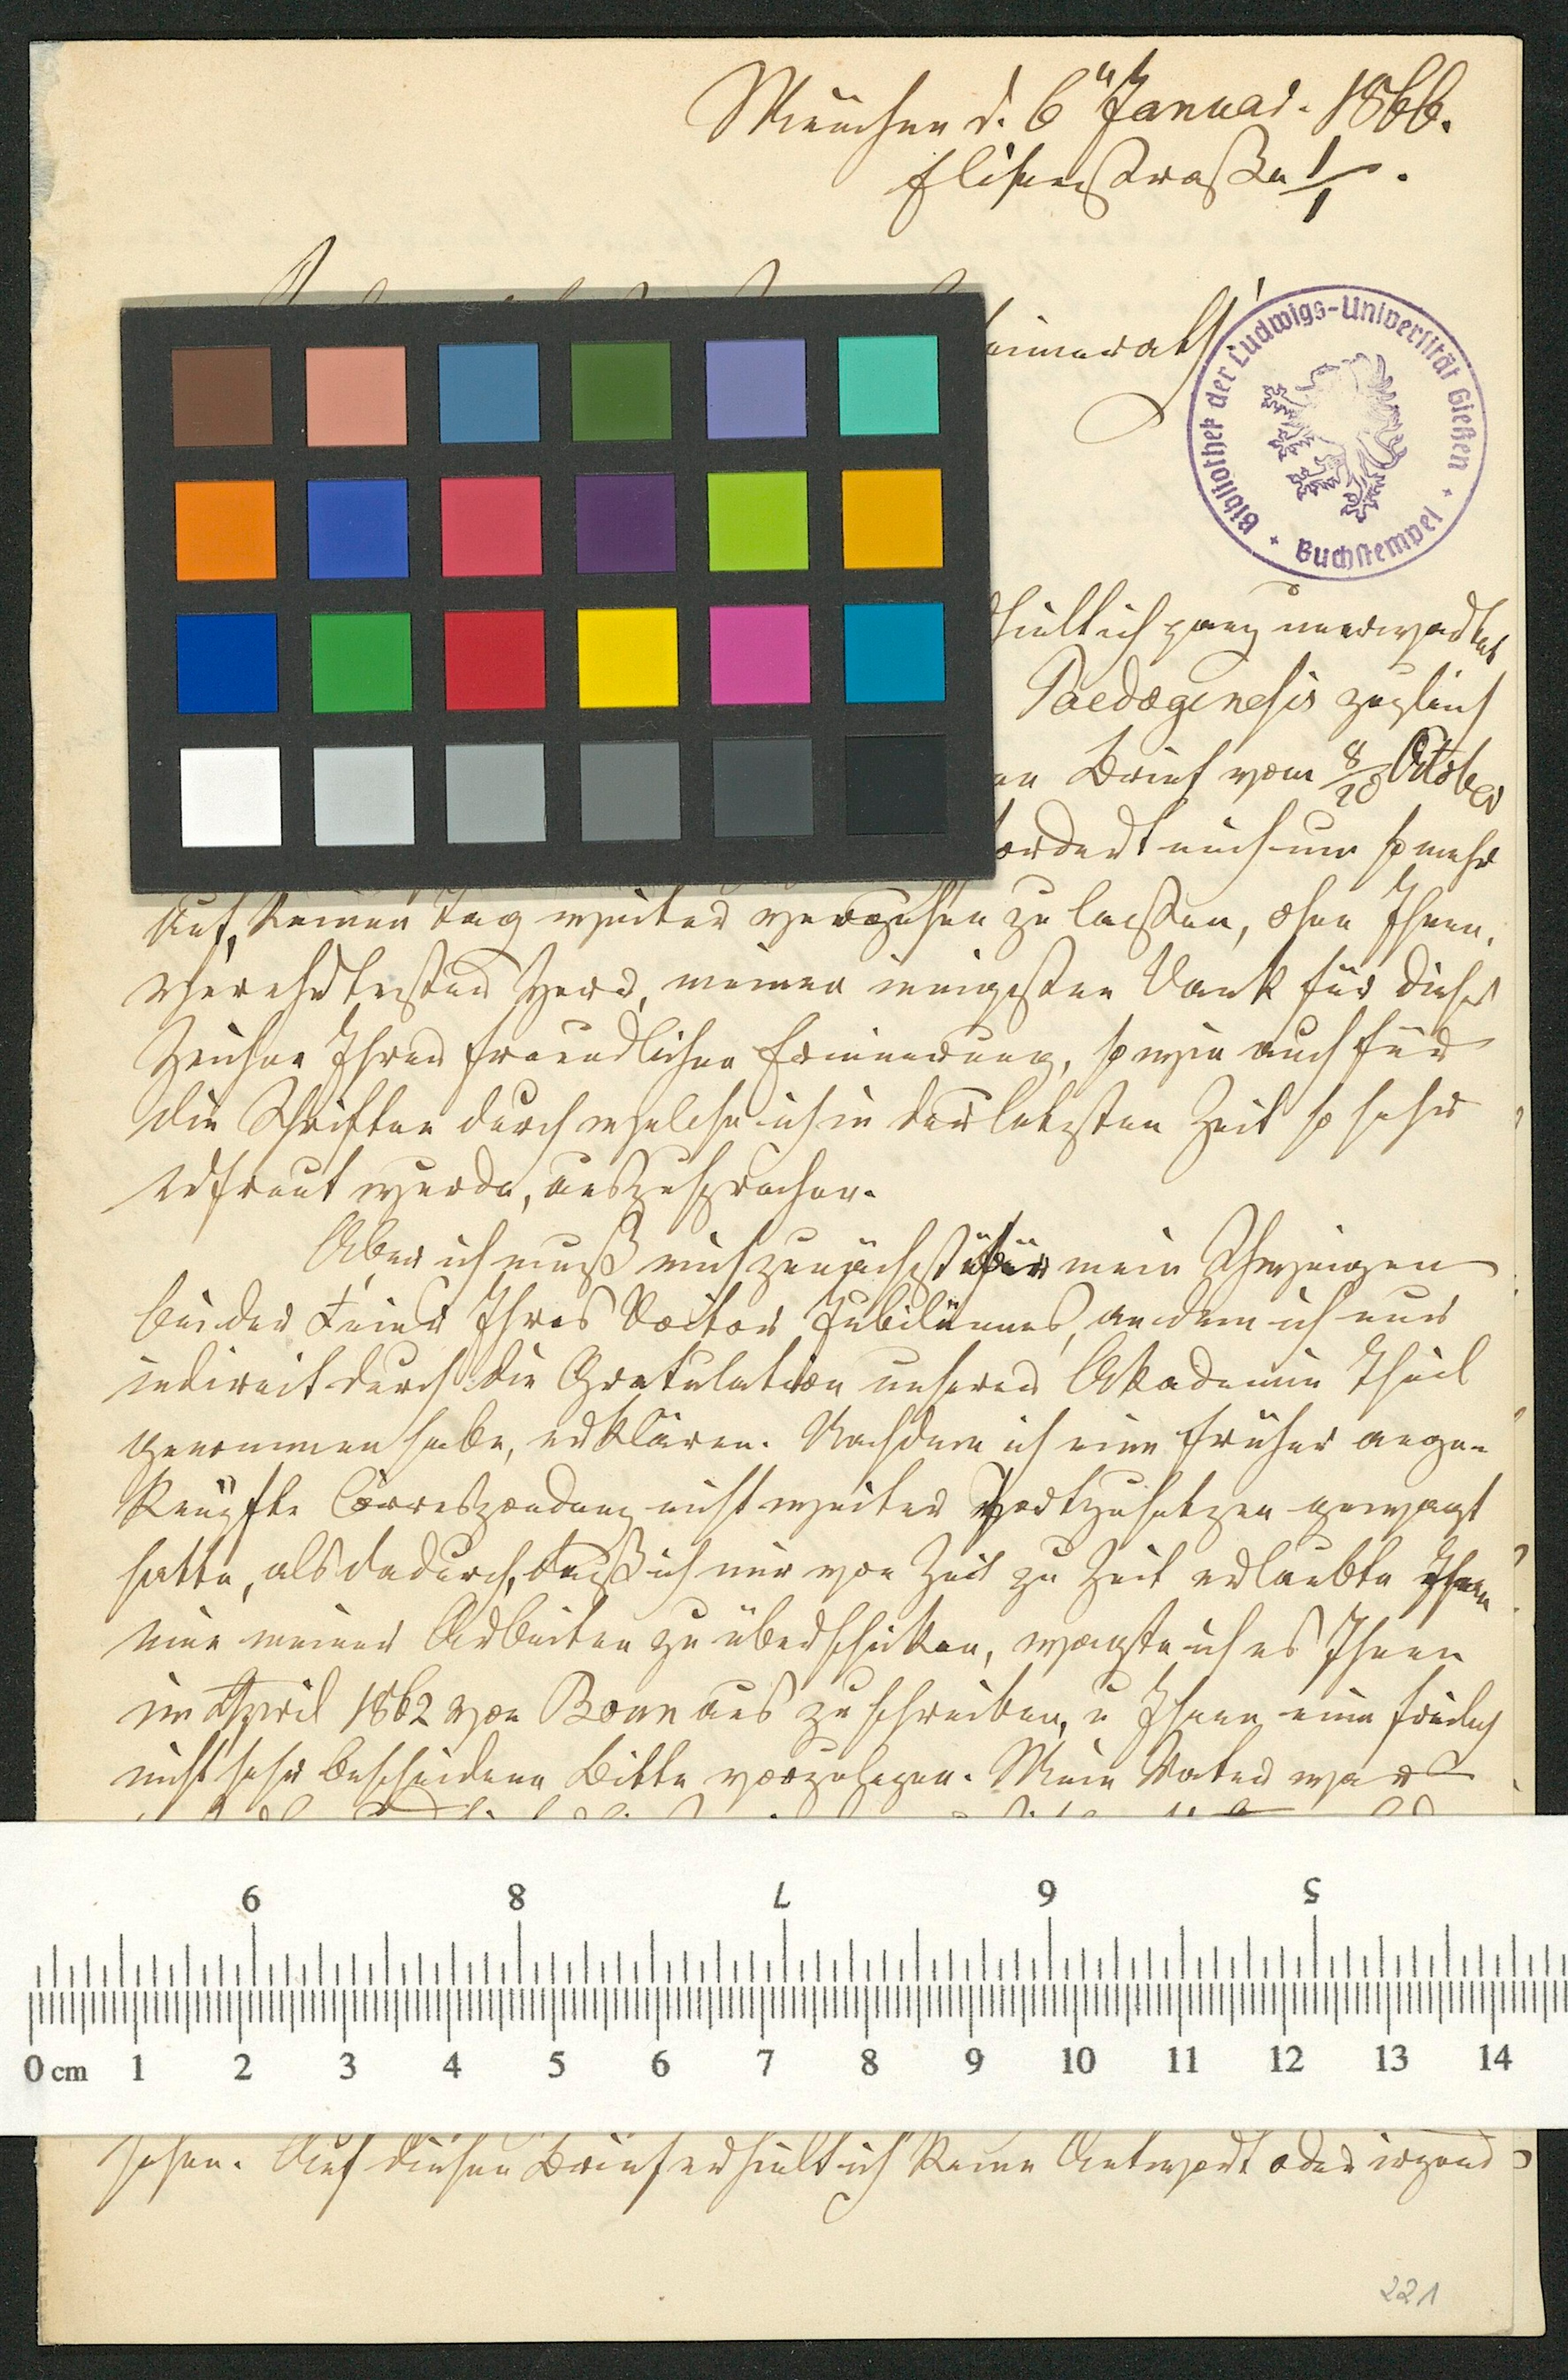 München d. 6ⁿ Januar. 1866.
Elisenstraße 1/1.
heimerath!
Bibliothek der Ludwigs-Universität Gießen
Buchstempel
erhielt ich ganz unerwartet
Paedogenesis zugleich
en Brief vom 8/20 October
fordert mich um so mehr
auf, keinen Tag weiter vergehen zu lassen, ohne Ihnen,
verehrtester Herr, meinen innigsten Dank für dieses
Zeichen Ihrer freundlichen Erinnerung, so wie auch für
die Schriften durch welche ich in der letzten Zeit so sehr
erfreut wurde, auszusprechen.
Aber ich muß mich zunächst über mein Schweigen
bei der Feier Ihres Doctor Jubiläums, an dem ich nur
indirect durch die Gratulation unserer Akademie Theil
genommen habe, erklären. Nachdem ich eine früher ange-
knüpfte Correspondenz nicht weiter fortzusetzen gewagt
hatte, als dadurch, daß ich mir von Zeit zu Zeit erlaubte Ihnen
eine meiner Arbeiten zu überschicken, wagte ich es Ihnen
im April 1862 von Bonn aus zu schreiben, u Ihnen eine freilich
nicht sehr bescheidene Bitte vorzulegen. Mein Vater war
9 8 7 6 5
0 cm 1 2 3 4 5 6 7 8 9 10 11 12 13 14
sehen. Auf diesen Brief erhielt ich keine Antwort oder irgend
221